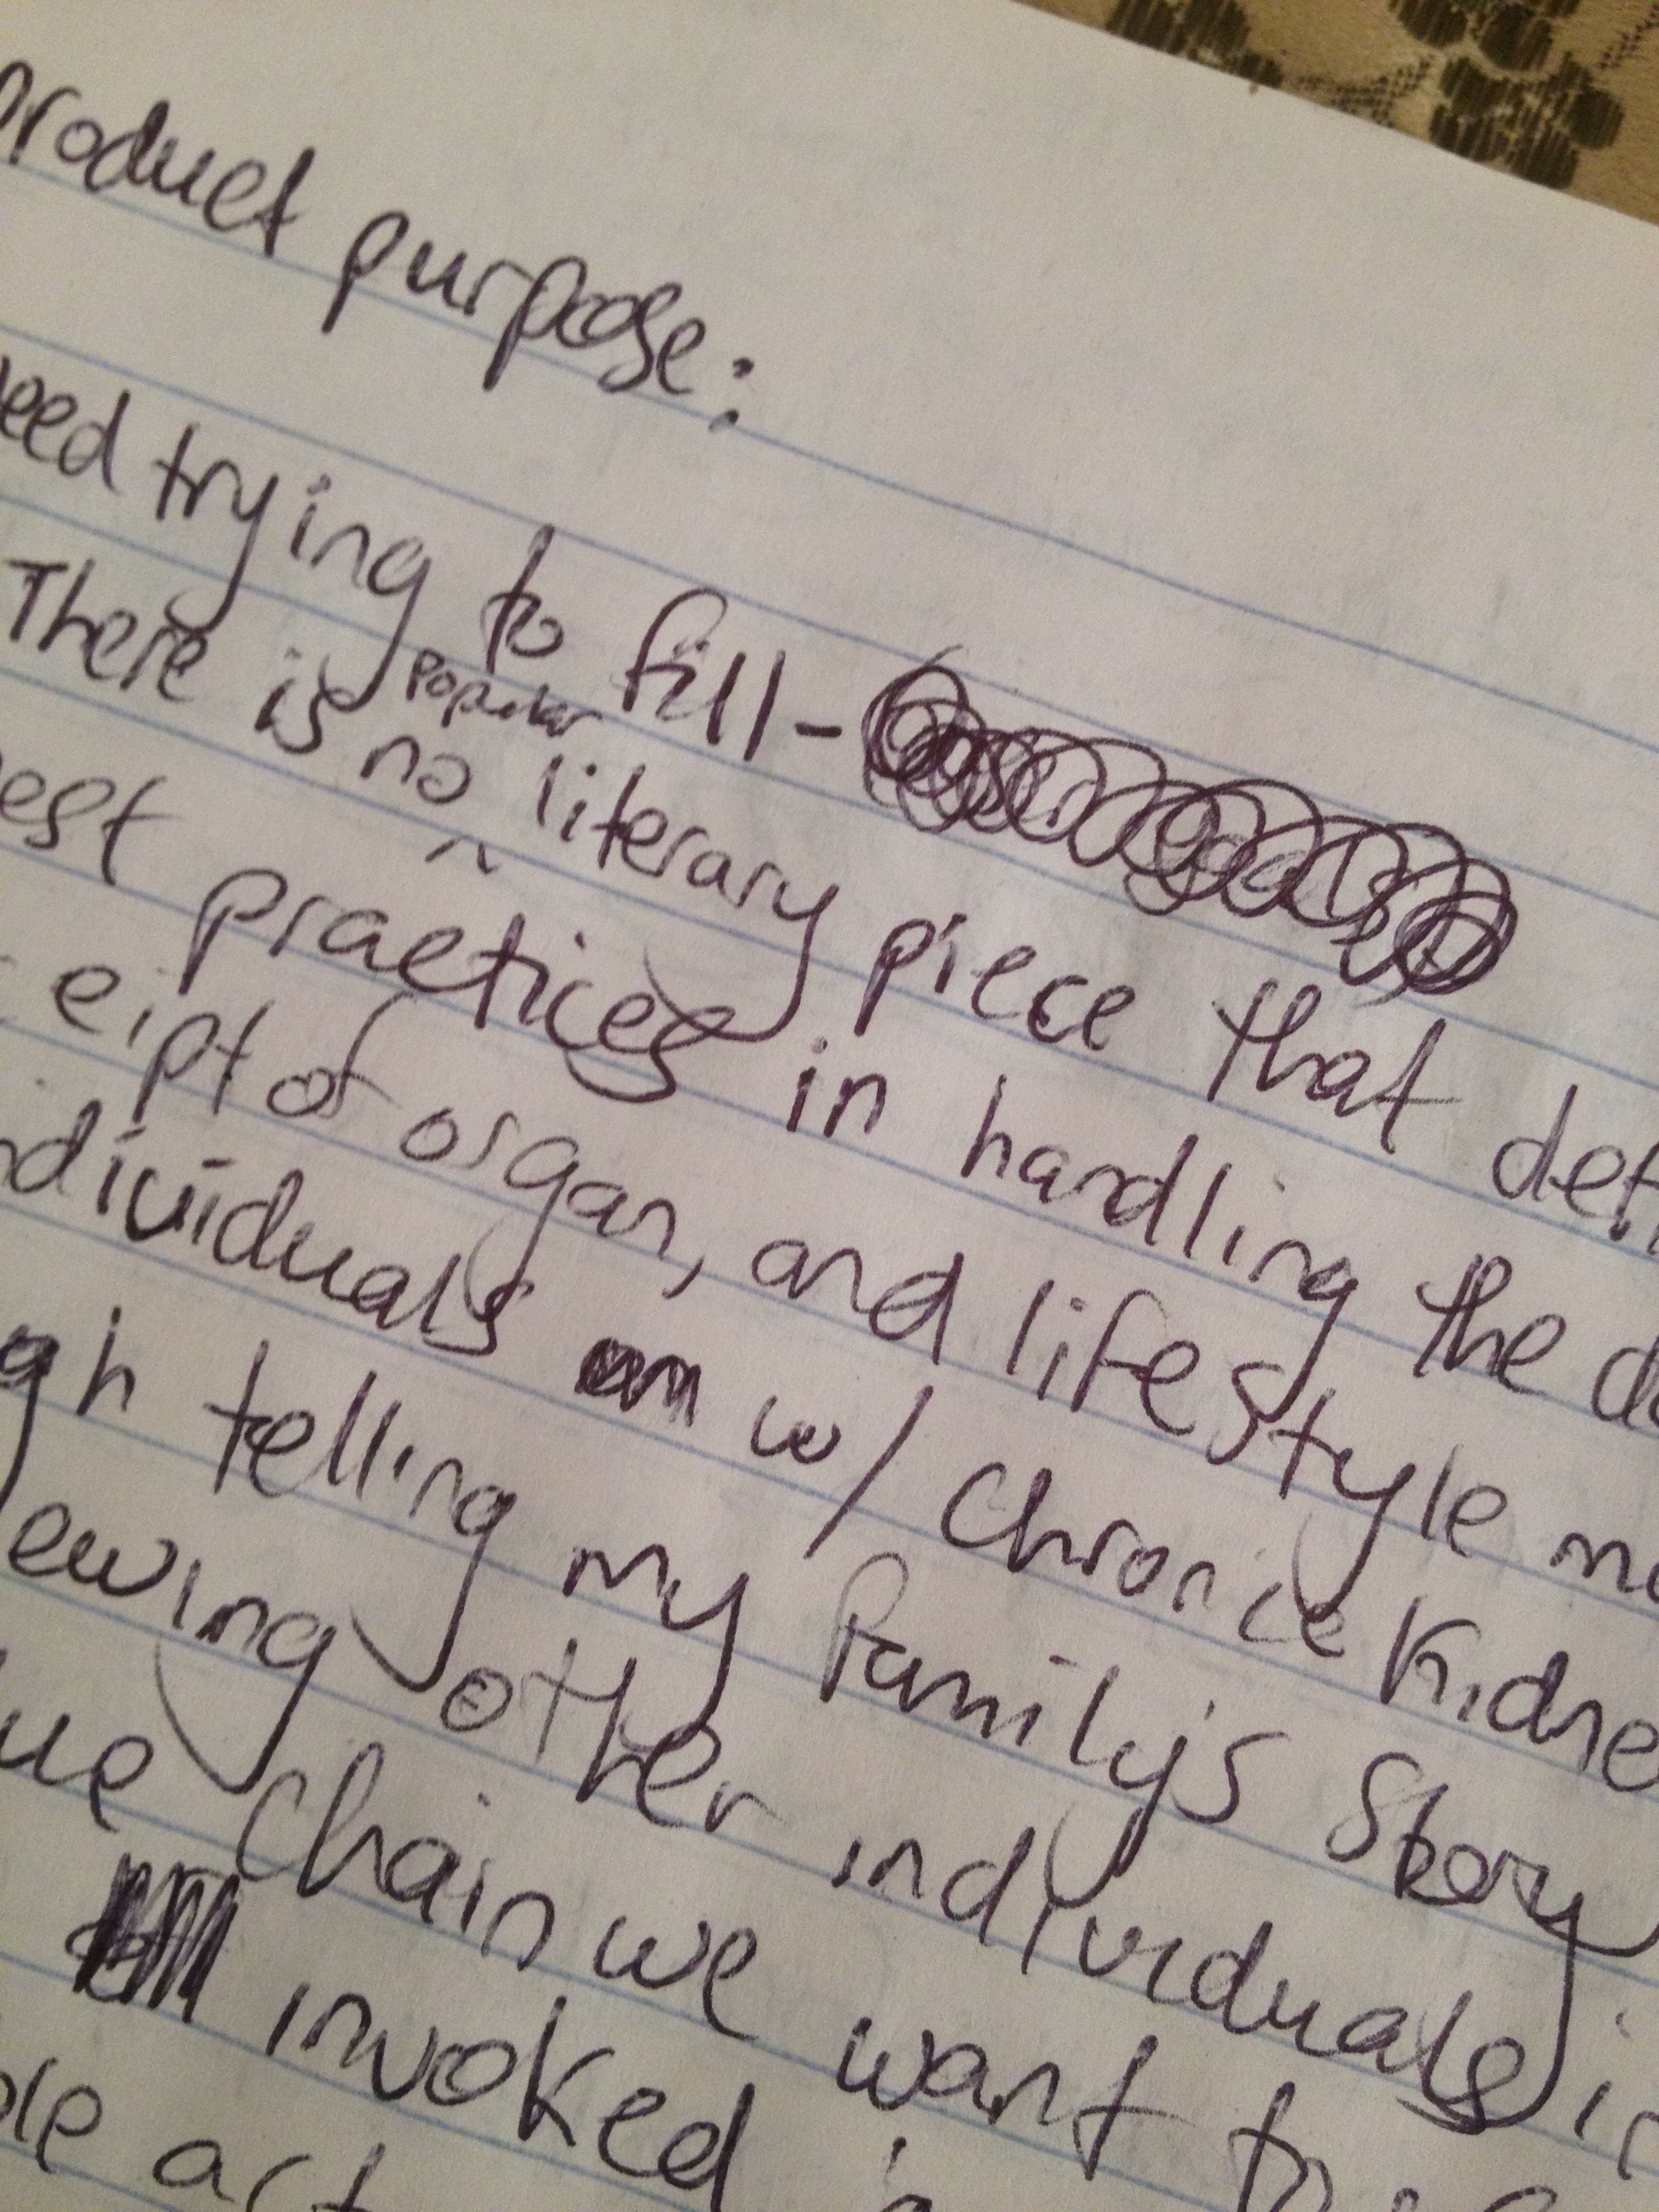 product purpose:
eed trying to fill -
There is no popular literary piece that det
est practices in handling the d
eipt of organ, and lifestyle m
dividuals w/ chronic kidne
gh telling my family's story
ewing other individuals i
ue chain we want to
invoked
le act